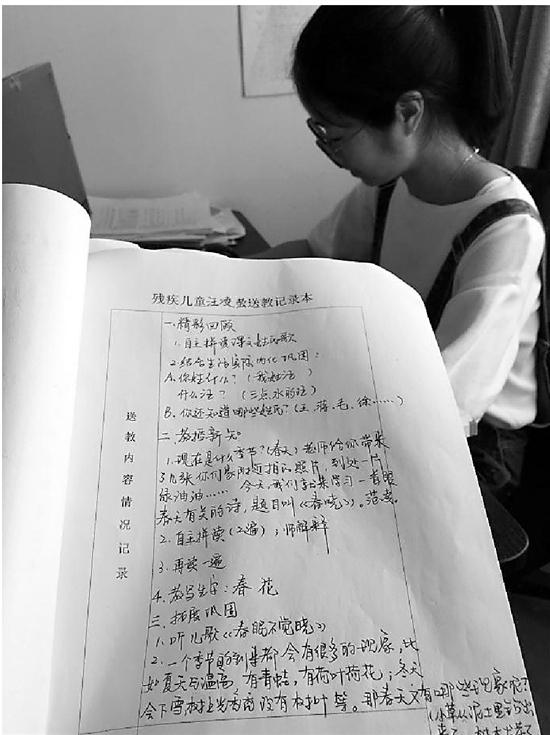 残疾儿童汪凌嫠送教记录本
送教内容情况记录
一、精彩回顾
1.自主拼读课文姓氏歌
2.结合生活实际内化巩固：
A.你姓什么？（我姓汪）
什么汪？（三点水的汪）
B.你还知道哪些姓氏？（王、蒋、毛、徐……）
二、教授新知
1.现在是什么季节？（春天）老师给你带来
了几张你们家附近拍的照片，到处一片
绿油油……今天，我们就来学习一首跟
春天有关的诗，题目叫《春晓》。范读。
2.自主拼读（2遍），师解释
3.再读一遍
4.教写生字：春 花
三、拓展巩固
1.听儿歌《春眠不觉晓》
2.一个季节的到来都会有很多的现象，比
如夏天与温高，有青蛙，有荷叶荷花；冬天
会下雪，树上光秃秃没有树叶等。那春天又有哪些现象呢？
（小草从泥土里钻出
来了